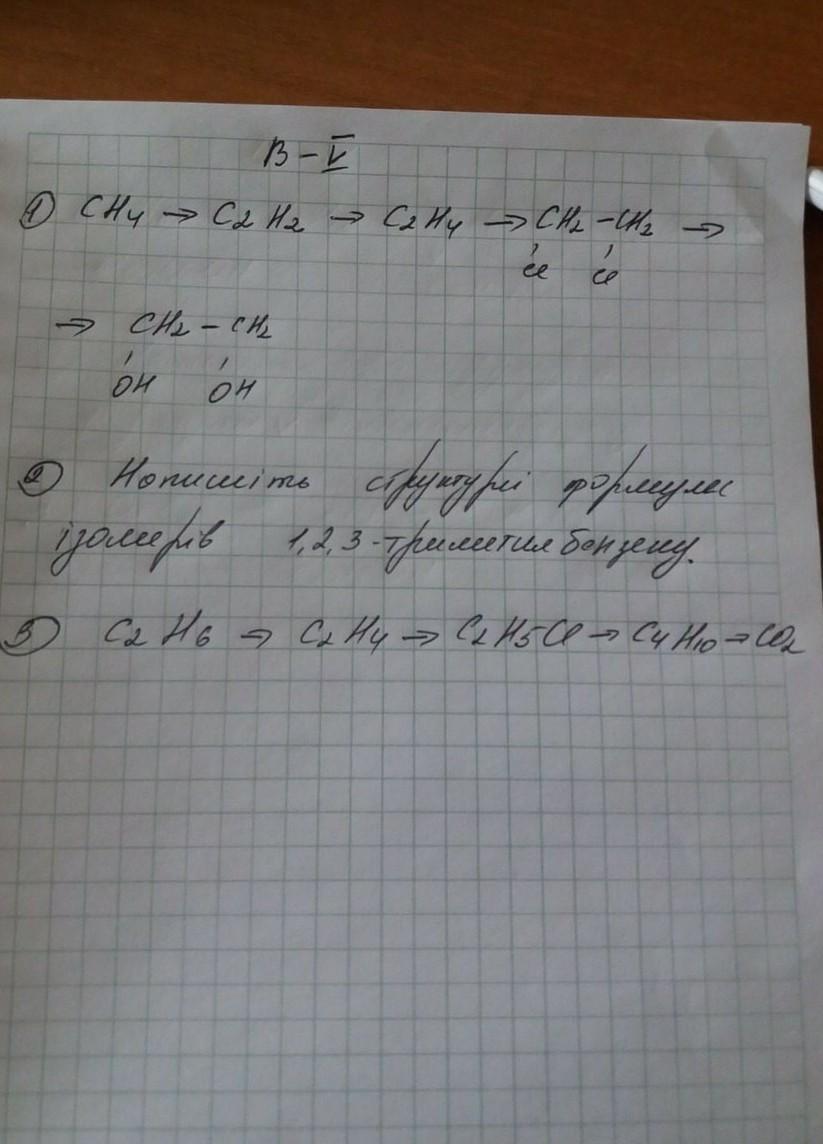 В – V
1) CH4 → C2H2 → C2H4 → CH2 – CH2 →
Cl Cl
→ CH2 – CH2
OH OH
2) Напишіть структурні формули
ізомерів 1,2,3-триметилбензену.
3) C2H6 → C2H4 → C2H5Cl → C4H10 → CO2